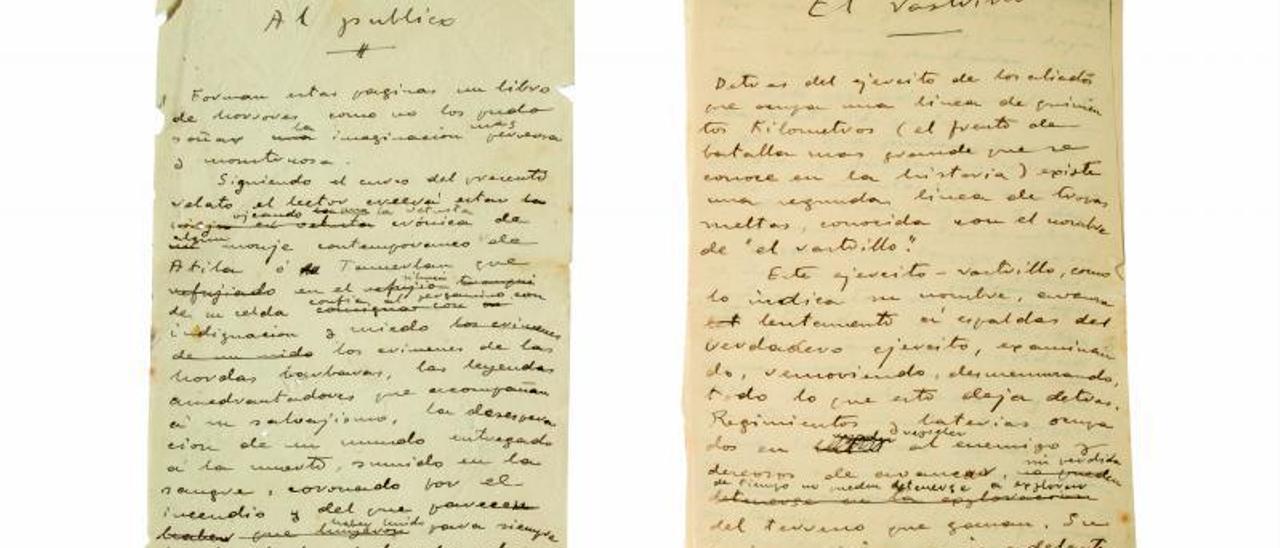 Al publico
Forman estas paginas un libro
de horrores como no los pudo
soñar la imaginacion más perversa
y monstruosa.
Siguiendo el curso del presente
relato el lector creerá estar la
ojeando la vetusta
crónica de
algun monje contemporaneo de
Atila ó Tamerlan que
refugiado en el
de su celda confia al pergamino con
indignacion y miedo los crimenes
de un nido los crimenes de las
hordas barbaras, las leyendas
amedrantadoras que acompañan
á su salvajismo, la desespera
cion de un mundo entregado
á la muerte, sumido en la
sangre, coronado por el
incendio y del que parecen
haber huido para siempre
El rastrillo
Detras del ejercito de los aliados
que ocupa una linea de quinien
tos Kilometros (el frente de
batalla mas grande que se
conoce en la historia) existe
una segunda linea de tropas
sueltas, conocida con el nombre
de "el rastrillo".
Este ejercito-rastrillo, como
lo indica su nombre, avanza
lentamente á espaldas del
verdadero ejercito, examinan
do, removiendo, desmenuzando,
todo lo que este deja detras.
Regimientos y baterias ocupa
dos en al enemigo y
deseosos de avanzar, sin perdida
de tiempo no pueden detenerse á explorar
detenerse en la exploracion
del terreno que ganan. Su